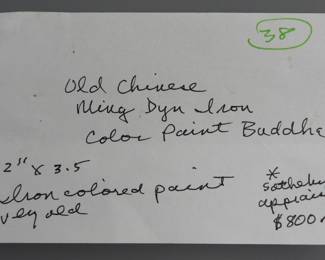 38
Old Chinese
Ming Dyn Iron
Color Paint Buddha
2" x 3.5
Iron colored paint
very old
*
$800